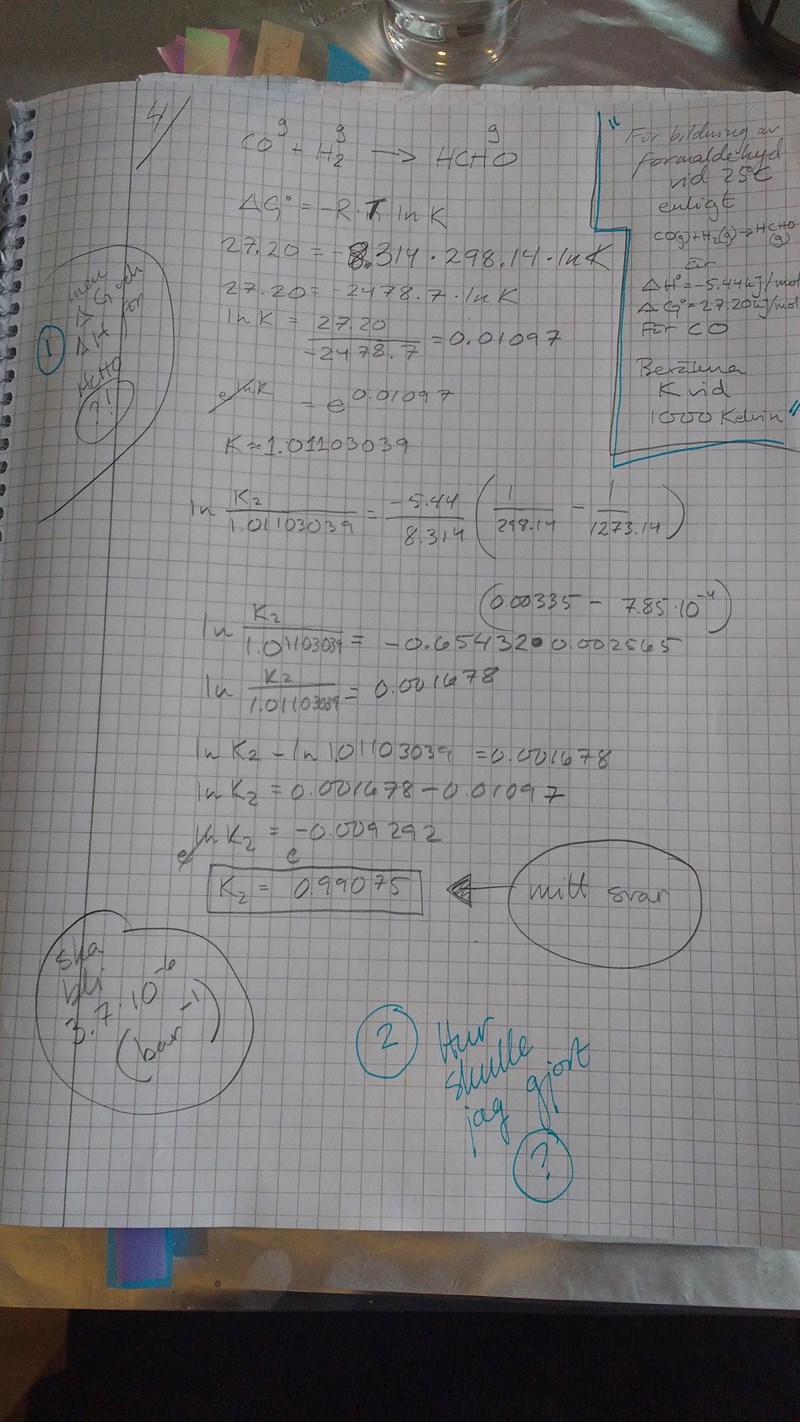 4/
g g g
CO + H2 → HCHO
ΔG° = -R·T ln K
27.20 = -8.314·298.14·ln K
27.20 = -2478.7·ln K
ln K = 27.20 / -2478.7 = 0.01097
e^ln K = e^0.01097
K ≈ 1.01103039
ln K2 / 1.01103039 = -5.44 / 8.314 (1 / 298.14 - 1 / 1273.14)
(0.00335 - 7.85·10^-4)
ln K2 / 1.01103039 = -0.65432·0.002565
ln K2 / 1.01103039 = 0.001678
ln K2 - ln 1.01103039 = 0.001678
ln K2 = 0.001678 - 0.01097
e^ln K2 = e^-0.009292
K2 = 0.99075
mitt svar
"För bildning av
formaldehyd
vid 25°C
enligt
CO(g)+H2(g)→HCHO
(g)
är
ΔH°=-5.44kJ/mol
ΔG°=27.20kJ/mol
För CO
Beräkna
K vid
1000 Kelvin"
1
men
ΔG och
ΔH för
HCHO
?!
ska
bli
3.7·10^-6
(bar^-1)
2 Hur
skulle
jag gjort
?